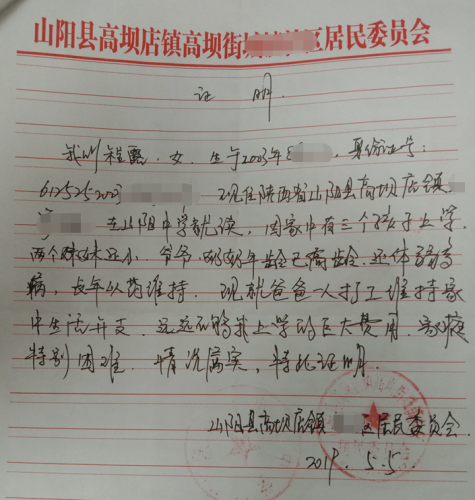 山阳县高坝店镇高坝街 区居民委员会
证明
程 女.生于2003年 ,身份证号:
612525200 现住陕西省山阳县高坝店镇
在山阳中学就读,因家中有三个孩子上学,
两个妹妹还小.爷爷.奶奶年龄已高龄.还体弱多
病,长年以药维持.现就爸爸一人打工维持家
中生活开支.远远不够我上学的巨大费用.家庭
特别困难.情况属实,特此证明.
山阳县高坝店镇 区居民委员会.
2019.5.5